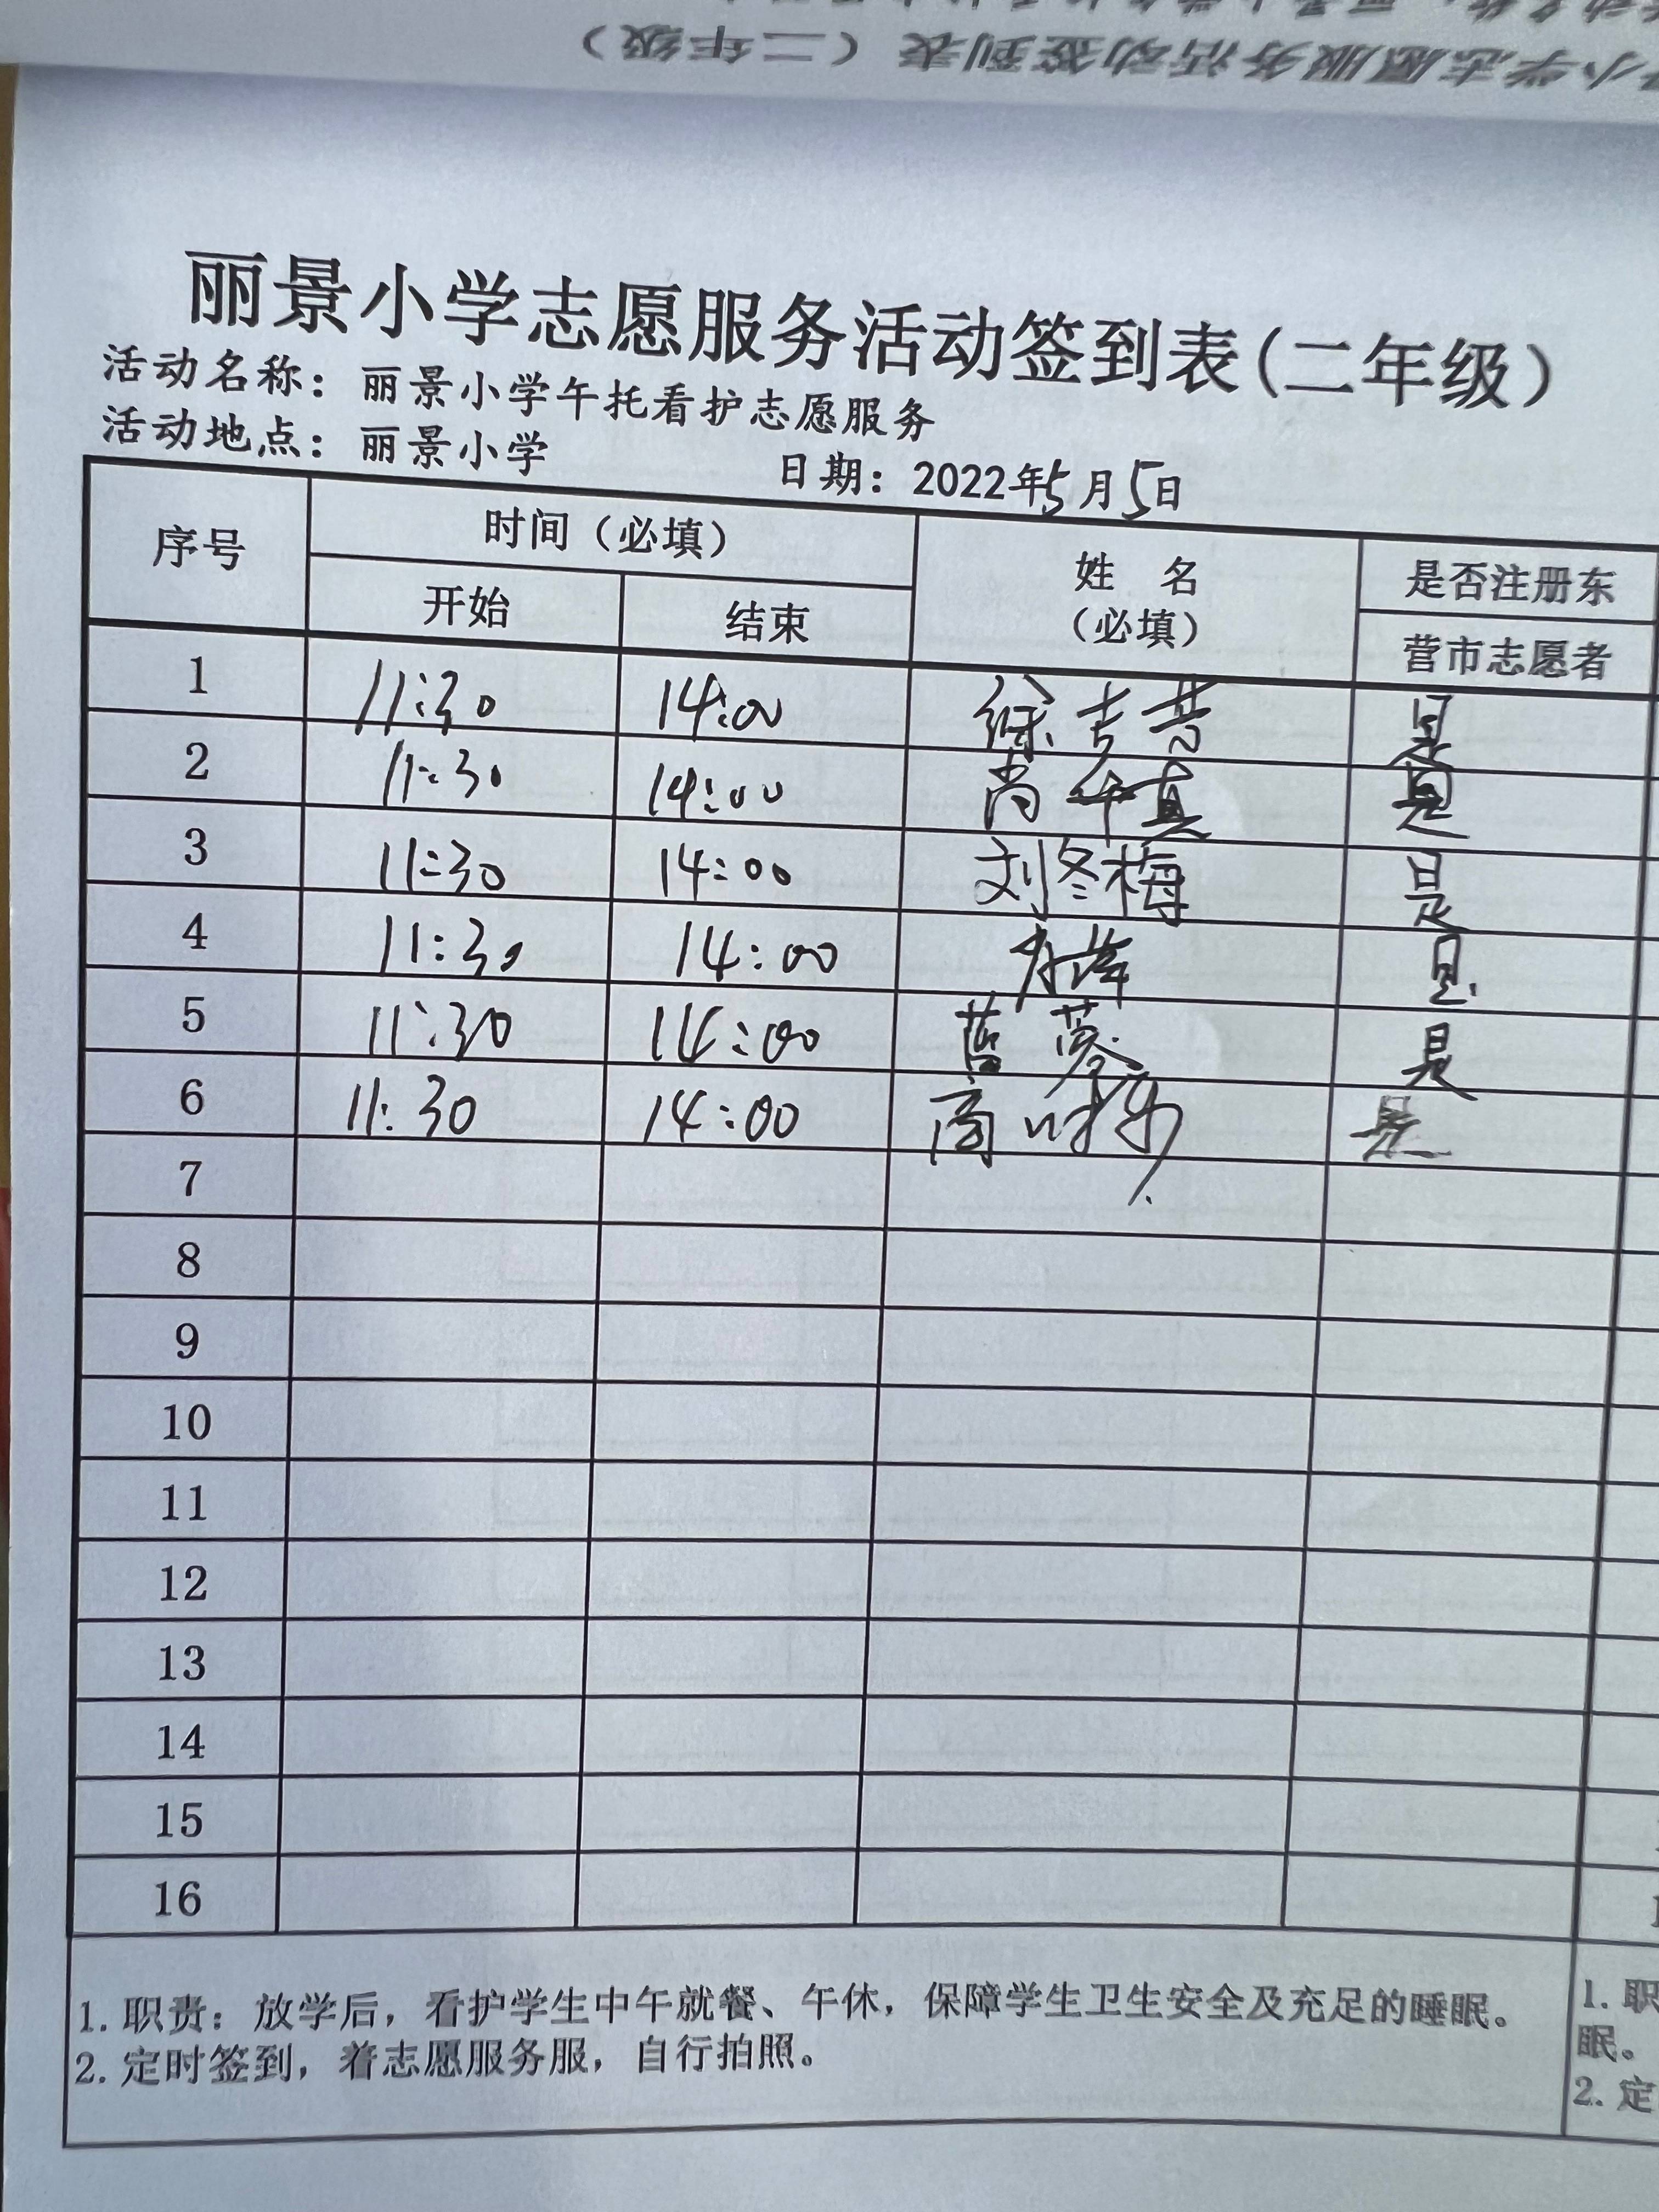 小学志愿服务活动签到表（二年级）
丽景小学志愿服务活动签到表(二年级）
活动名称：丽景小学午托看护志愿服务
活动地点：丽景小学 日期：2022年5月5日
序号 时间（必填） 姓 名 是否注册东
开始 结束 （必填） 营市志愿者
1 11:30 14:00 徐 是
2 11:30 14:00 尚 真 是
3 11:30 14:00 刘冬梅 是
4 11:30 14:00 是
5 11:30 14:00 蓉 是
6 11:30 14:00 是
7
8
9
10
11
12
13
14
15
16
1. 职责：放学后，看护学生中午就餐、午休，保障学生卫生安全及充足的睡眠。
2. 定时签到，着志愿服务服，自行拍照。
1. 职
眠。
2. 定